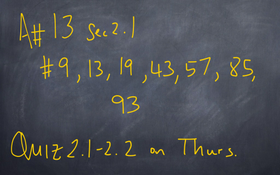 A# 13 sec 2.1
#9, 13, 19, 43, 57, 85,
93
Quiz 2.1-2.2 on Thurs.